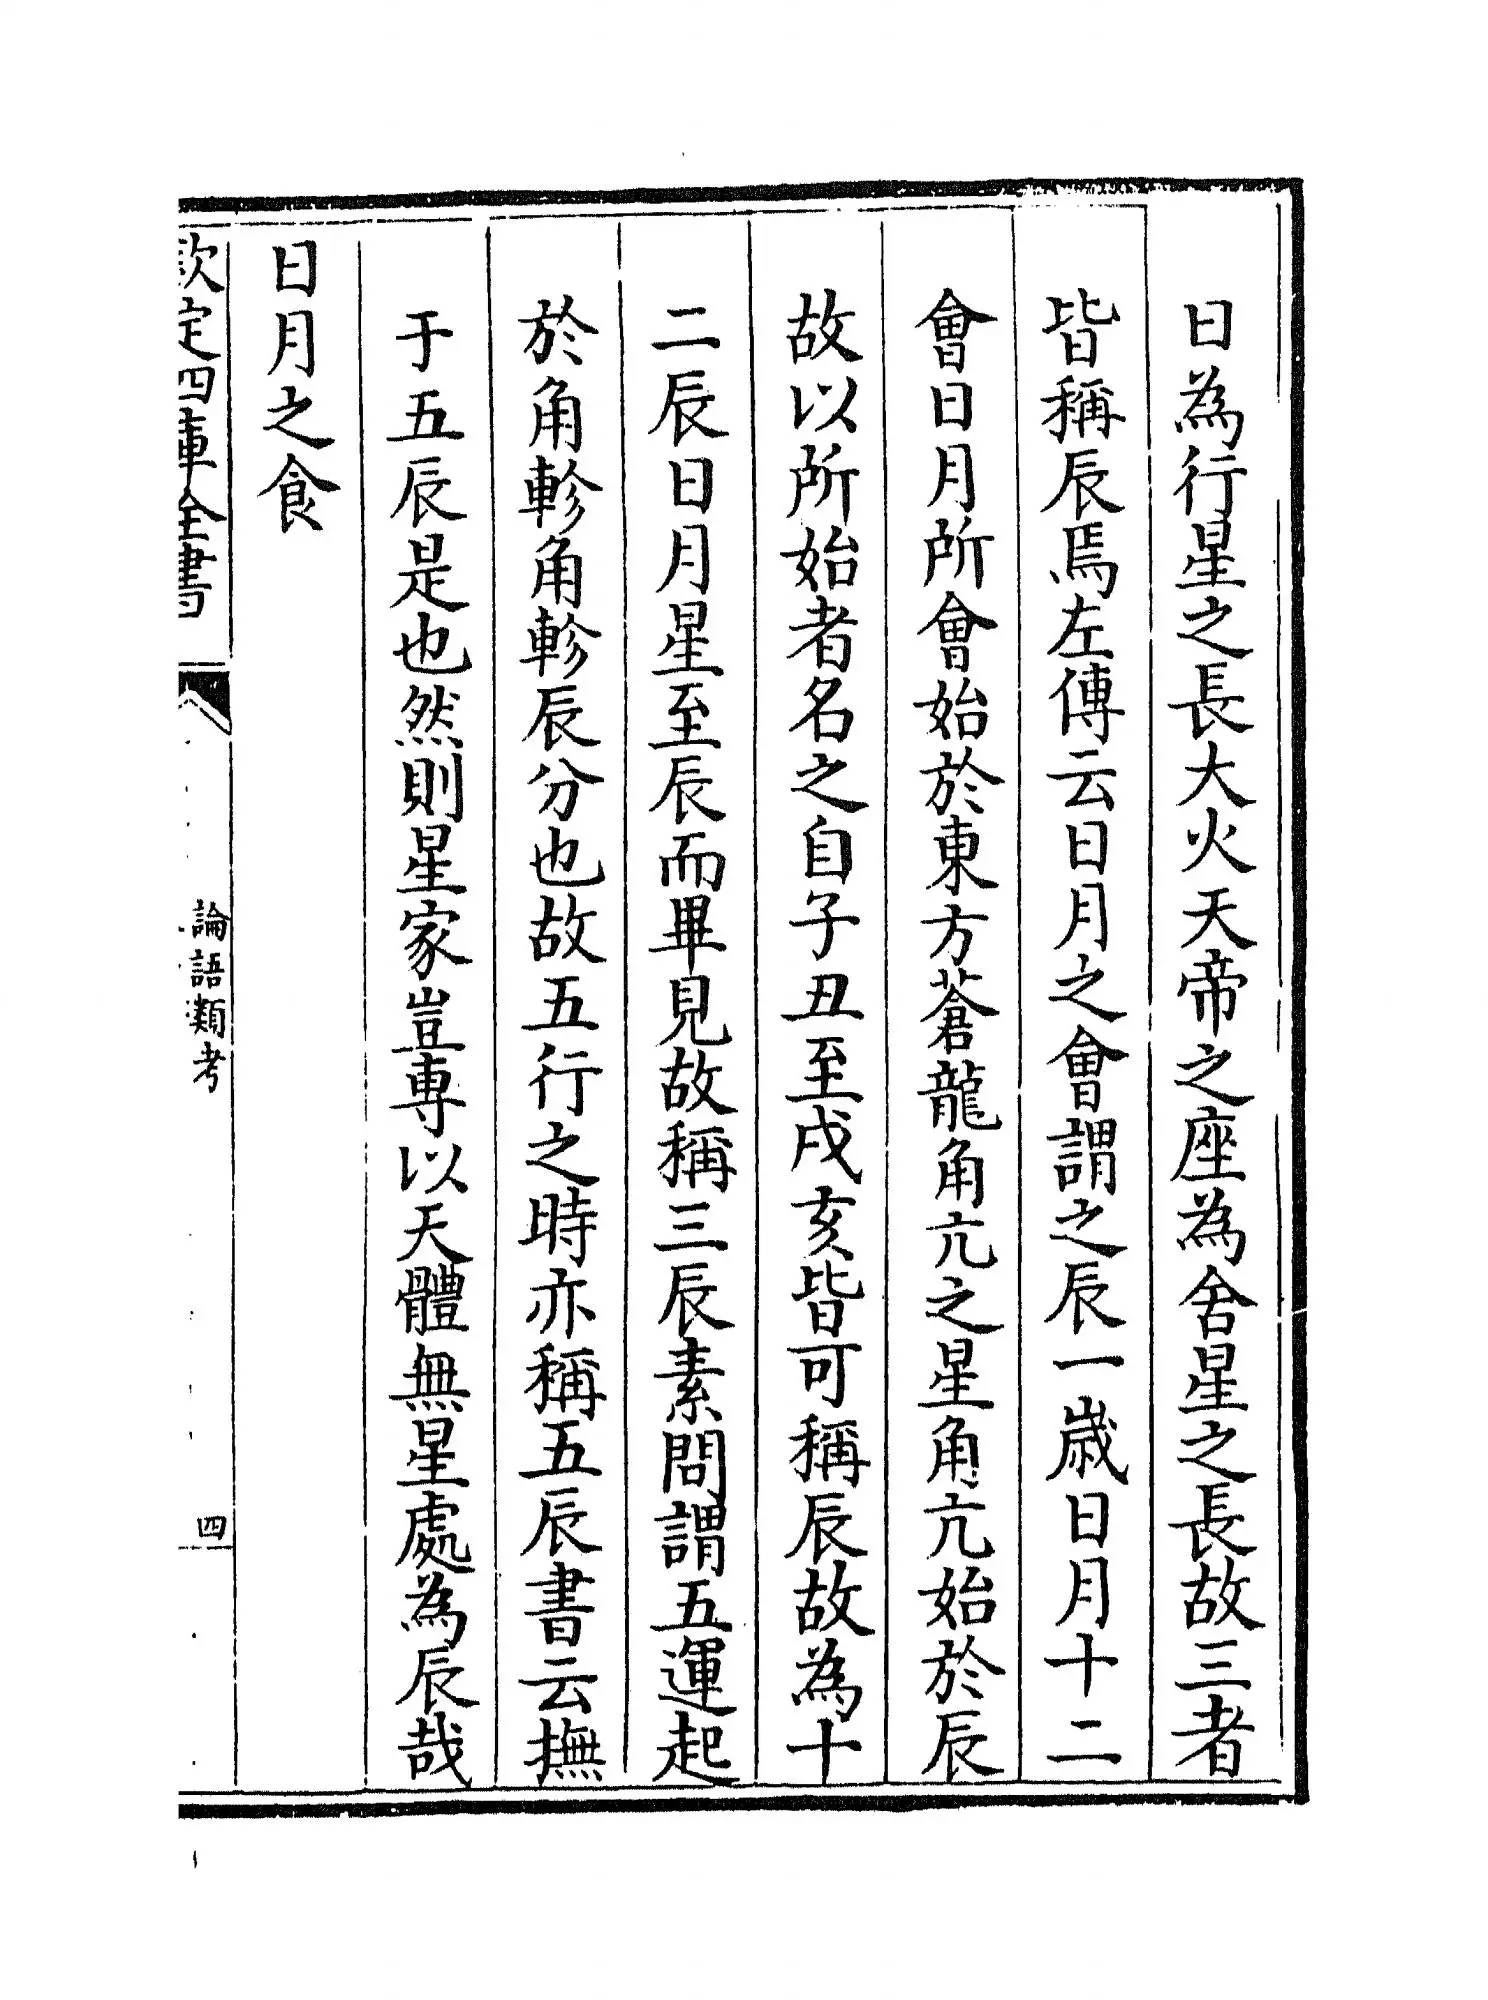 日為行星之長大火天帝之座為舍星之長故三者
皆稱辰焉左傳云日月之會謂之辰一歲日月十二
會日月所會始於東方蒼龍角亢之星角亢始於辰
故以所始者名之自子丑至戌亥皆可稱辰故為十
二辰日月星至辰而畢見故稱三辰素問謂五運起
於角軫角軫辰分也故五行之時亦稱五辰書云撫
于五辰是也然則星家豈專以天體無星處為辰哉
日月之食
欽定四庫全書
論語類考
四